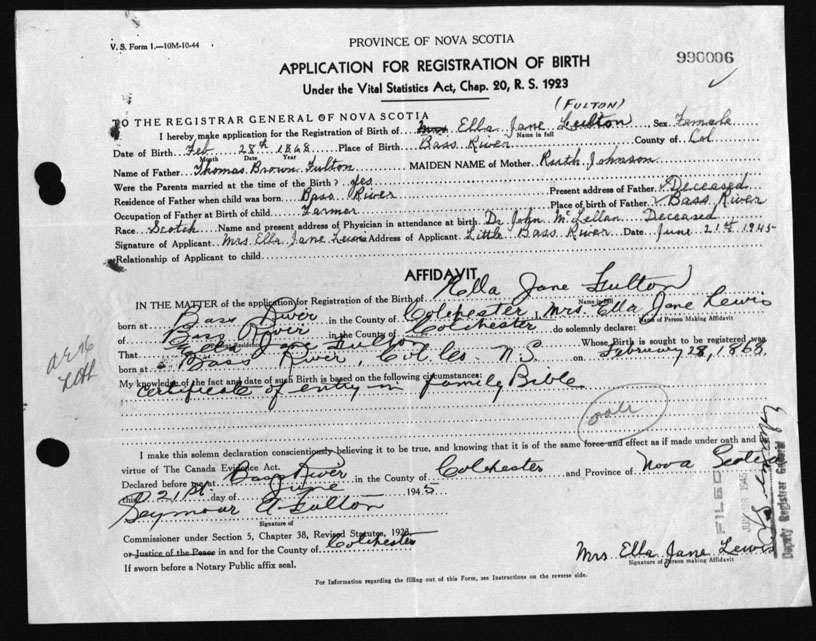 V. S. Form 1.—10M-10-44
PROVINCE OF NOVA SCOTIA
990006
APPLICATION FOR REGISTRATION OF BIRTH
Under the Vital Statistics Act, Chap. 20, R. S. 1923
(FULTON)
TO THE REGISTRAR GENERAL OF NOVA SCOTIA
I hereby make application for the Registration of Birth of Mrs Ella Jane Fulton Sex Female
Name in full
Date of Birth Feb 28th 1868 Place of Birth Bass River County of Col
Month Date Year
Name of Father Thomas Brown Fulton MAIDEN NAME of Mother Ruth Johnson
Were the Parents married at the time of the Birth? yes Present address of Father Deceased
Residence of Father when child was born Bass River Place of birth of Father Bass River
Occupation of Father at Birth of child Farmer
Race Scotch Name and present address of Physician in attendance at birth Dr John McLellan Deceased
Signature of Applicant Mrs Ella Jane Lewis Address of Applicant Little Bass River Date June 21st 1945
Relationship of Applicant to child
AFFIDAVIT
IN THE MATTER of the application for Registration of the Birth of Ella Jane Fulton
Name in full
born at Bass River in the County of Colchester, Mrs. Ella Jane Lewis
Name of Person Making Affidavit
of Bass River in the County of Colchester do solemnly declare:
That Ella Jane Fulton Whose Birth is sought to be registered was
born at Bass River, Col. Co. N.S. on February 28, 1868,
My knowledge of the fact and date of such Birth is based on the following circumstances:
Certificate of entry in family Bible
I make this solemn declaration conscientiously believing it to be true, and knowing that it is of the same force and effect as if made under oath and by
virtue of The Canada Evidence Act.
Declared before me at Bass River in the County of Colchester and Province of Nova Scotia
this 21st day of June 1945
Seymour A Fulton
Signature of
Commissioner under Section 5, Chapter 38, Revised Statutes, 1923,
or Justice of the Peace in and for the County of Colchester
If sworn before a Notary Public affix seal.
Mrs. Ella Jane Lewis
Signature of Person making Affidavit
FILED
Deputy Registrar General
For Information regarding the filling out of this Form, see Instructions on the reverse side.